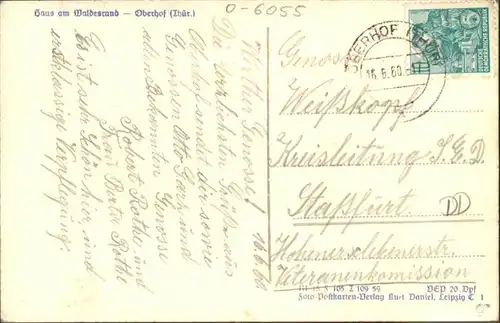 Haus am Waldesrand – Oberhof (Thür.)
0-6055
OBERHOF (THÜR)
16.6.60
DEUTSCHE DEMOKRATISCHE REPUBLIK
16.6.60
Werther Genosse!
Die herzlichsten Grüße aus
Oberhof sendet dir sowie
Genossen Otto und
allen Bekannten Genosse
Robert Rothe und
Frau Berta Rothe
Es ist sehr schön hier und
erstklassige Verpflegung.
Genosse
Weißkopf
Kreisleitung S.E.D.
Staßfurt
DD
Hohenerxlebenerstr.
Veteranenkommission
III 18 5 105 Z 109 59 DEP 20 Dpf
Foto-Postkarten-Verlag Kurt Daniel, Leipzig C 1